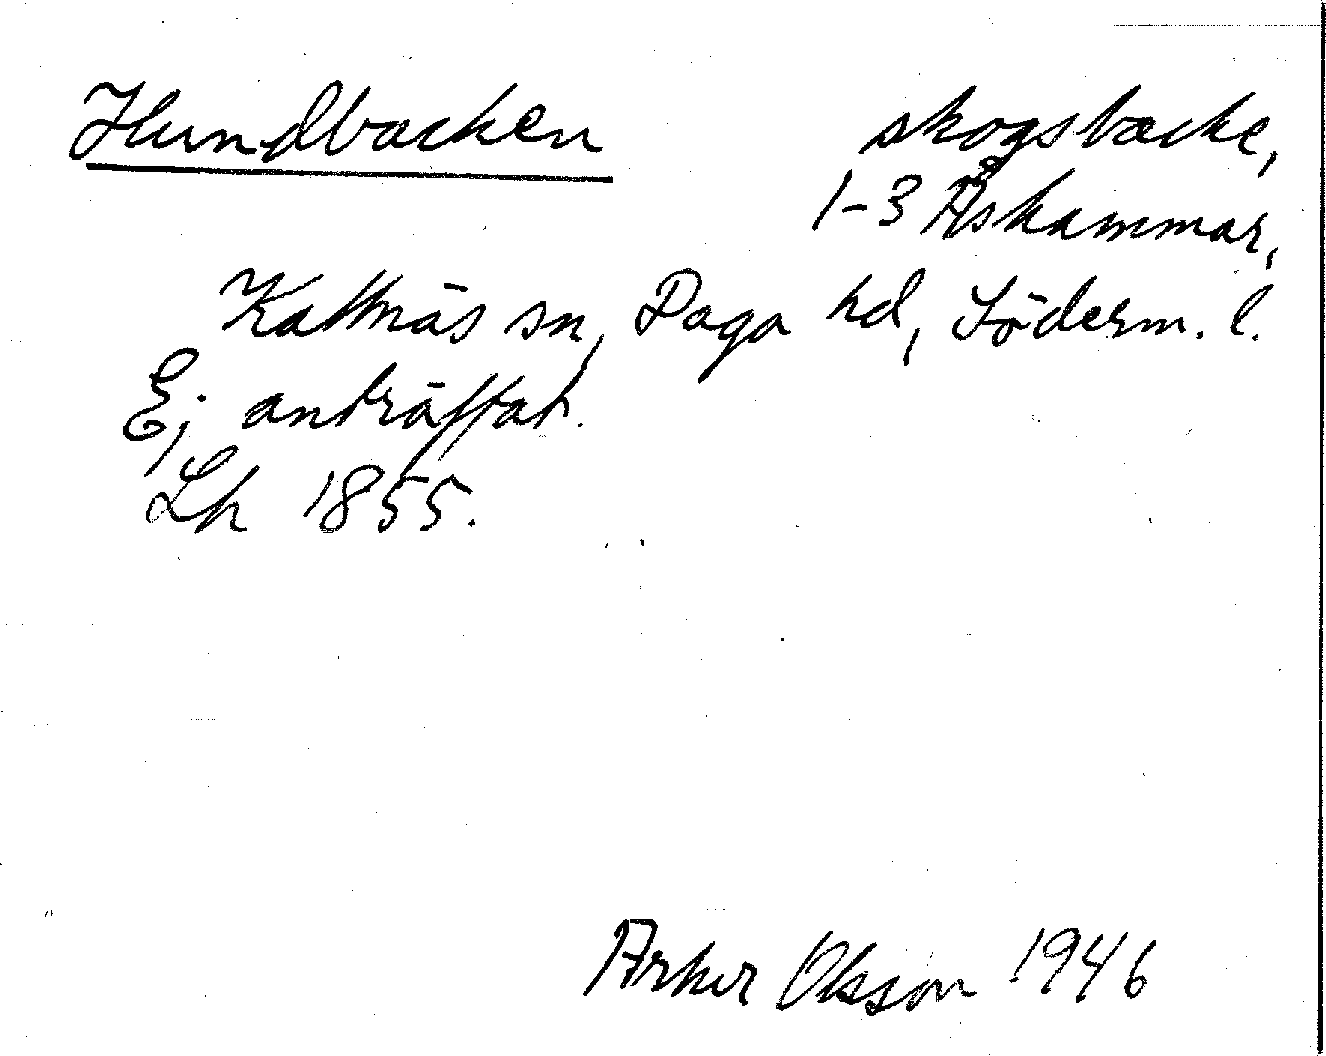 Hundbacken skogsbacke,
1-3 Åskammar,
Kattnäs sn, Daga hd, Söderm. l.
Ej anträffat.
Lh 1855.
Olsson 1946